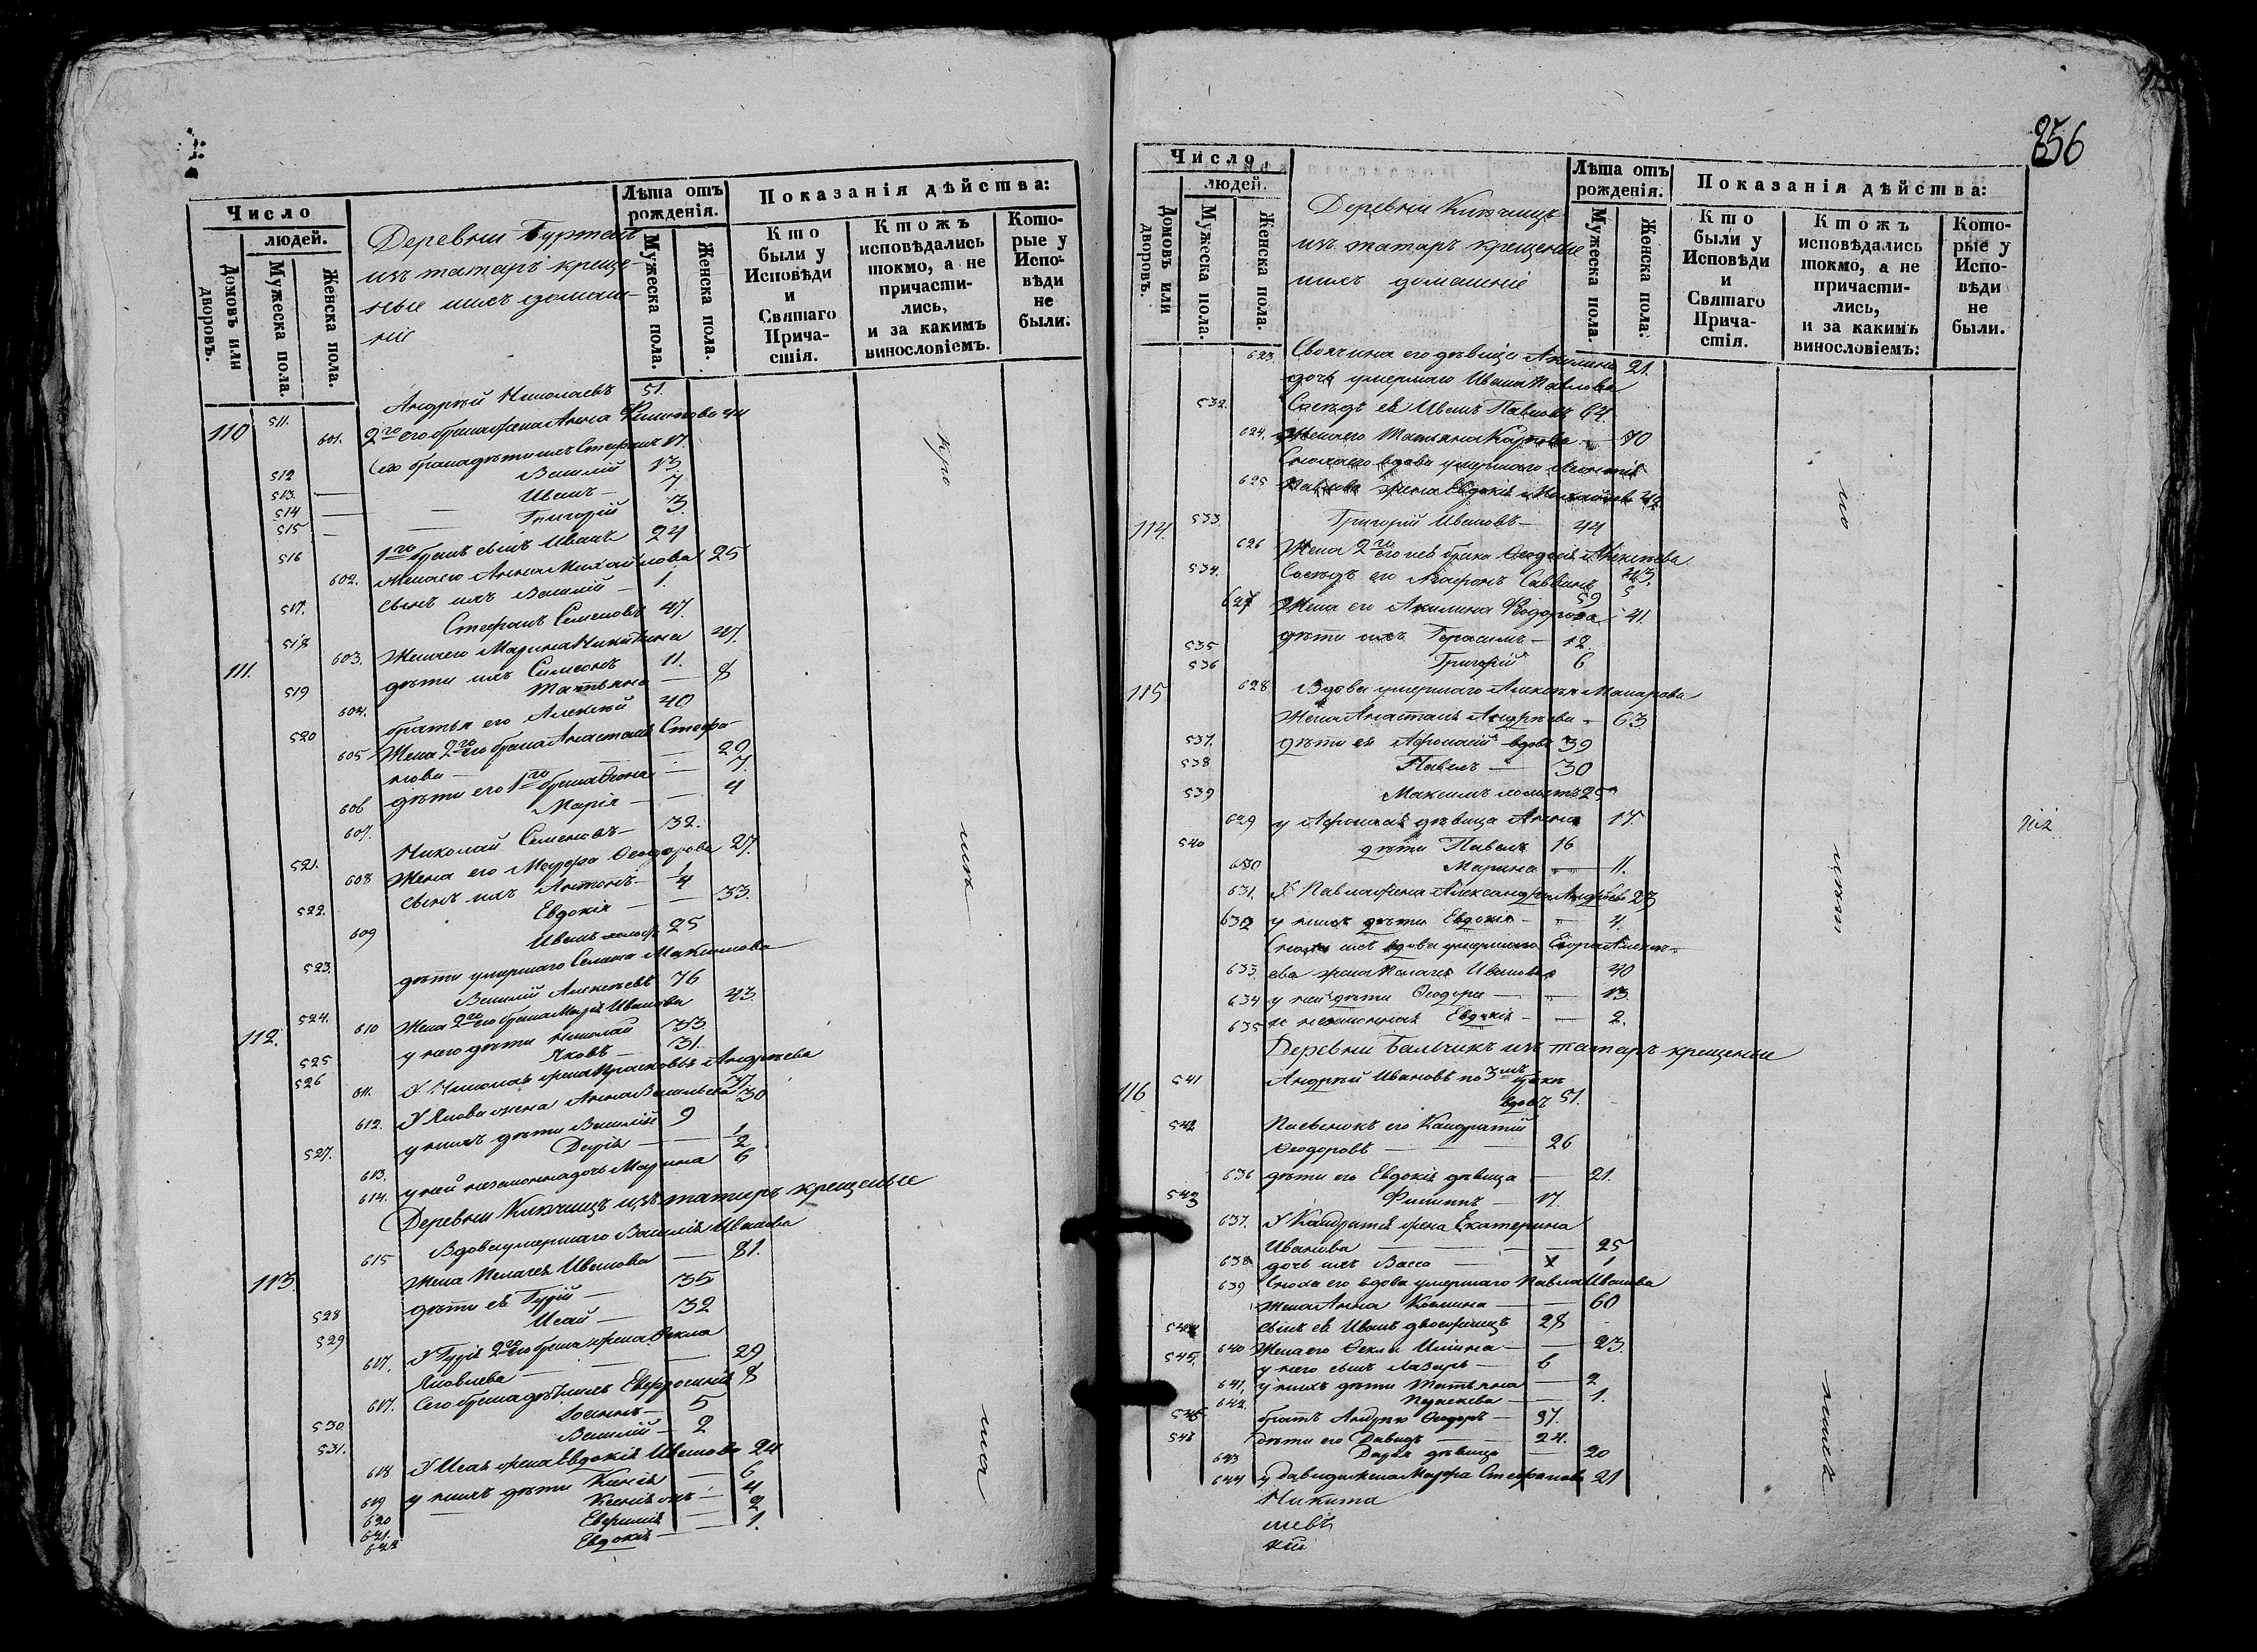 Число
людей.
Домовъ или дворовъ.
Мужеска пола.
Женска пола.
Деревни
изъ татаръ креще-
ные ихъ домаш-
ніе
Лѣта отъ рожденія.
Мужеска пола.
Женска пола.
Показанія дѣйства:
Кто были у Исповѣди и Святаго Причастія.
Ктожъ исповѣдались токмо, а не причастились, и за какимъ винословіемъ.
Которые у Исповѣди не были.
110 511. Андрей Николаевъ 51.
601. 2го его брака жена Анна Филипова 44
512 Сего брака дѣти ихъ Стефанъ 17.
513. Василій 13.
514 Иванъ 7.
515 Григорій 3.
516 1го брака сынъ Иванъ 24
602. Жена его Анна Михайлова 25
517. сынъ ихъ Василій 1.
111. 518 Стефанъ Семеновъ 47.
603. Жена его Марина Никитина 47.
519 дѣти ихъ Симеонъ 11.
604. Татьяна 8
520 братья его Алексѣй 40
605 Жена 2го его брака Анастасія Стефа-
нова 29
606 дѣти его 1го брака 7.
607. Марія 4
521. Николай Семеновъ 32.
608 Жена его Ѳеодорова 27.
522. сынъ ихъ Антонъ
609 Евдокія 33.
523. Иванъ 25
дѣти умершаго Семена Максимова
112. 524. Василій Алексѣевъ 76
610 Жена 2го его брака Марья Иванова 43.
525 у него дѣти Николай 33
526 Яковъ 31.
611. У Николая жена Прасковья Андреева
612. У Якова жена Анна Васильева 30
527. у нихъ дѣти Василій 9
613. Дарія
614. у ней незаконна дочь Марина 6
Деревни изъ татаръ крещеные
113. 615 Вдова умершаго Василія Иванова
Жена Пелагея Иванова 81.
528 дѣти еѣ Гурій 35
529 Исай 32
617. У Гурія 2го его брака жена Ѳекла
Яковлева 29
617. Сего брака дѣти ихъ 8
530. 5
531. Василій 2
618 У Исая жена Евдокія Иванова 24
619 у нихъ дѣти Ксенія 6
620 Ксенія 4
621. 2
622 Евдокія 1.
256
Число
людей.
Домовъ или дворовъ.
Мужеска пола.
Женска пола.
Деревни
изъ татаръ крещеные
ихъ домашніе
Лѣта отъ рожденія.
Мужеска пола.
Женска пола.
Показанія дѣйства:
Кто были у Исповѣди и Святаго Причастія.
Ктожъ исповѣдались токмо, а не причастились, и за какимъ винословіемъ:
Которые у Исповѣди не были.
623 Своячина его дѣвица Акилина 21.
дочь умершаго Ивана Павлова
532. Сосѣдъ еѣ Иванъ Павловъ 64.
624. Жена его Татьяна Карпова 70
Сноха его вдова умершаго Леонтія
625 Павлова жена Евдокія 42
114. 533 Григорій Ивановъ 44
626 Жена 2го его брака Алексѣева 43.
534. Сосѣдъ его Агафонъ 59
627 Жена его Акилина Ѳедорова 41.
535 дѣти ихъ Герасимъ 12.
536 Григорій 6
115 628 Вдова умершаго Алексѣя Макарова
Жена Анастасія Андреева 63.
537. дѣти еѣ Афонасій вдовъ 39
538 Павелъ 30
539 Максимъ холостъ 25
629 у Афонасія дѣвица Анна 17.
540 дѣти Павелъ 16
630 Марина 11.
631. У Павла жена Александра Андреева 23
632 у нихъ дѣти Евдокія 4.
Сноха ихъ вдова умершаго Егора Алексѣ-
633 ева жена Пелагея Иванова 40
634 у ней дѣти Ѳеодора 13.
635 и незаконная Евдокія 2.
Деревни Бальчикъ изъ татаръ крещеные
116 541 Андрей Ивановъ по 3мъ бракѣ
вдовъ 51.
542 Пасынокъ его Кандратій
Ѳеодоровъ 26
636 дѣти его Евдокія дѣвица 21.
543 Филиппъ 17.
637. У Кандратія жена Екатерина
Иванова 25
638 дочь ихъ Васса 1
639 Сноха его вдова умершаго Павла Иванова
Жена Анна Козмина 60
544 сынъ еѣ Иванъ двоеженецъ 28
640 Жена его Ѳекла Ильина 23.
545. у него сынъ Лазарь 6
641. у нихъ дѣти Татьяна 2
642. 1.
546 братъ Андрею Ѳедоръ 37.
548 дѣти его Давидъ 24.
643 Дарья дѣвица 20
644 у Давида жена Марфа Стефанова 21
Никита